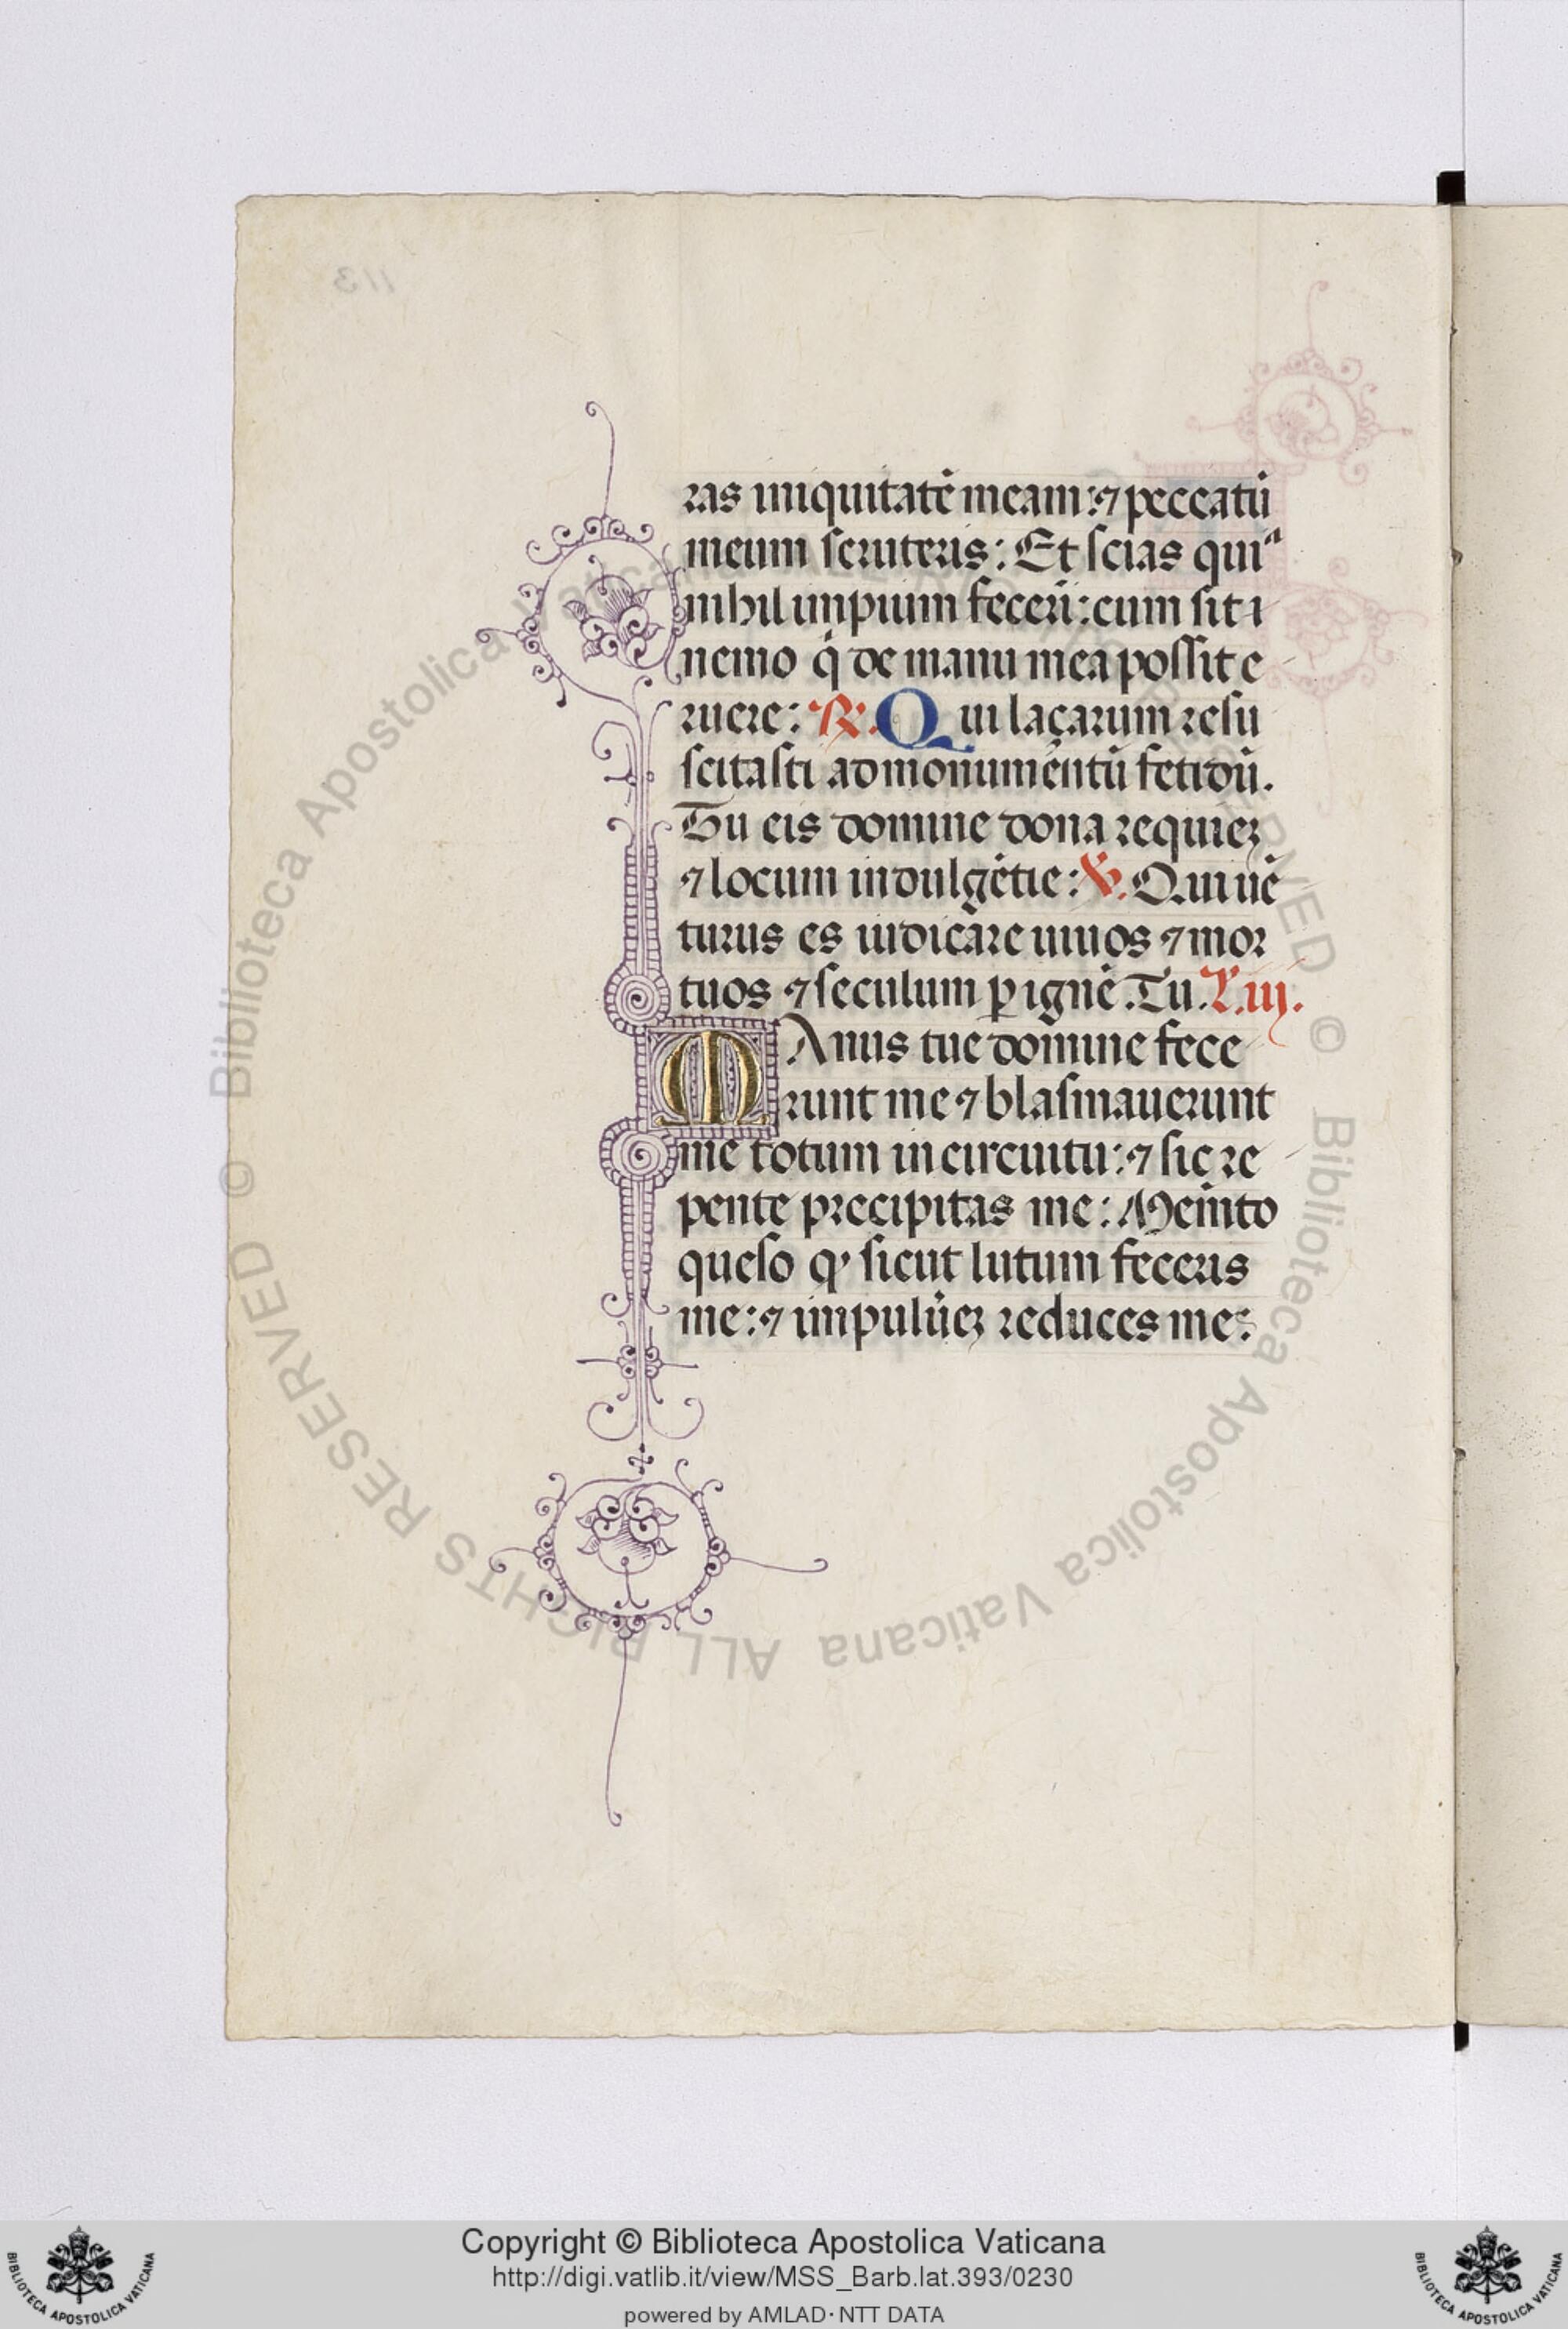 ras iniquitatē meam: ⁊ peccatū
meum scruteris: Et scias quiᵃ
nihil impium fecerī: cum sit i
nemo q̇ de manu mea possit e
ruere: ℟. Qui laçarum resu
scitasti a monumentū fetidū.
Tu eis domine dona requieꝫ
⁊ locum indulgētie: ℣. Qui uē
turus es iudicare uiuos ⁊ mor
tuos ⁊ seculum ꝑ ignē. Tu. L. iij.
MAnus tue domine fece
runt me ⁊ blasmauerunt
me totum in circuitu: ⁊ sic re
pente precipitas me: Memīto
queso qꝰ sicut lutum feceris
me: ⁊ in pulūeꝫ reduces me:
113
© Biblioteca Apostolica Vaticana ALL RIGHTS RESERVED
© Biblioteca Apostolica Vaticana ALL RIGHTS RESERVED
Copyright © Biblioteca Apostolica Vaticana
http://digi.vatlib.it/view/MSS_Barb.lat.393/0230
powered by AMLAD · NTT DATA
BIBLIOTECA APOSTOLICA VATICANA
BIBLIOTECA APOSTOLICA VATICANA